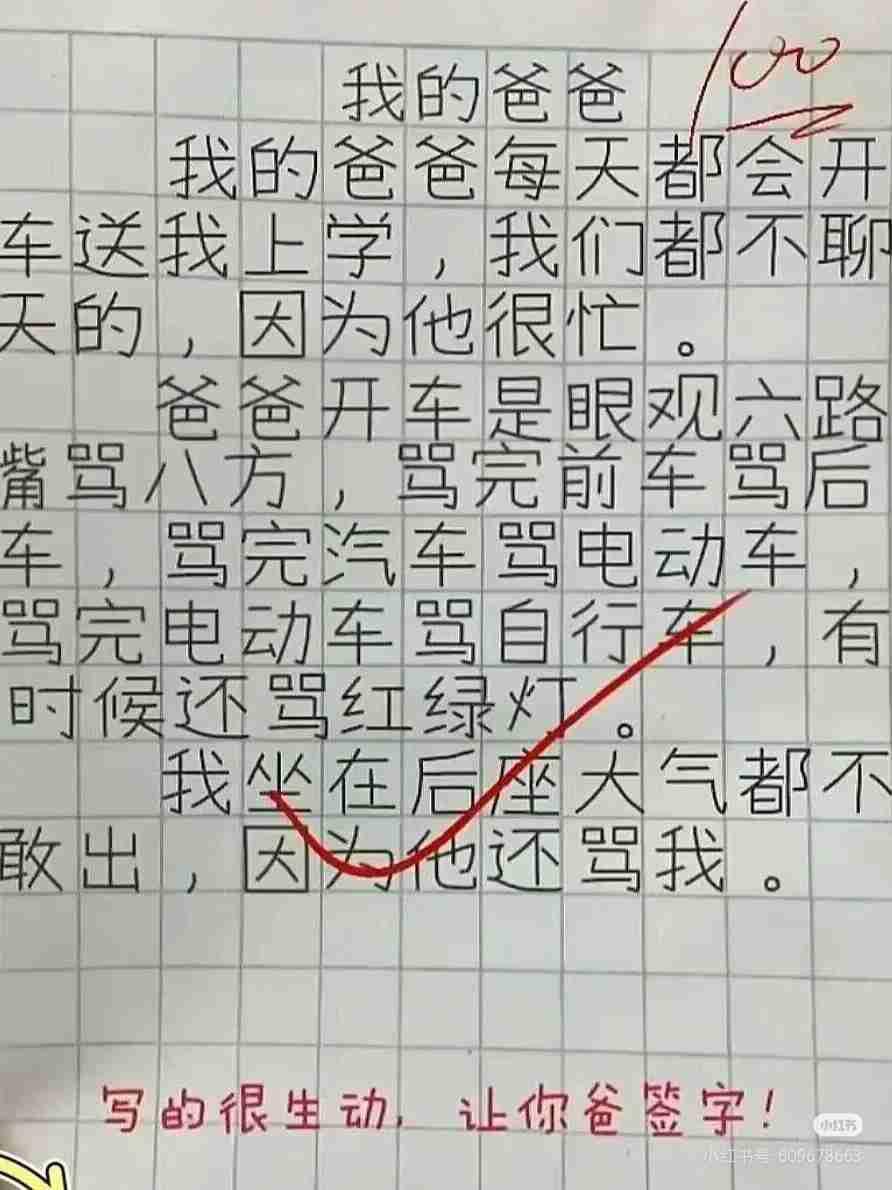 100
我的爸爸
我的爸爸每天都会开
车送我上学，我们都不聊
天的，因为他很忙。
爸爸开车是眼观六路
嘴骂八方，骂完前车骂后
车，骂完汽车骂电动车，
骂完电动车骂自行车，有
时候还骂红绿灯。
我坐在后座大气都不
敢出，因为他还骂我。
写的很生动，让你爸签字！
小红书
小红书号 609678663